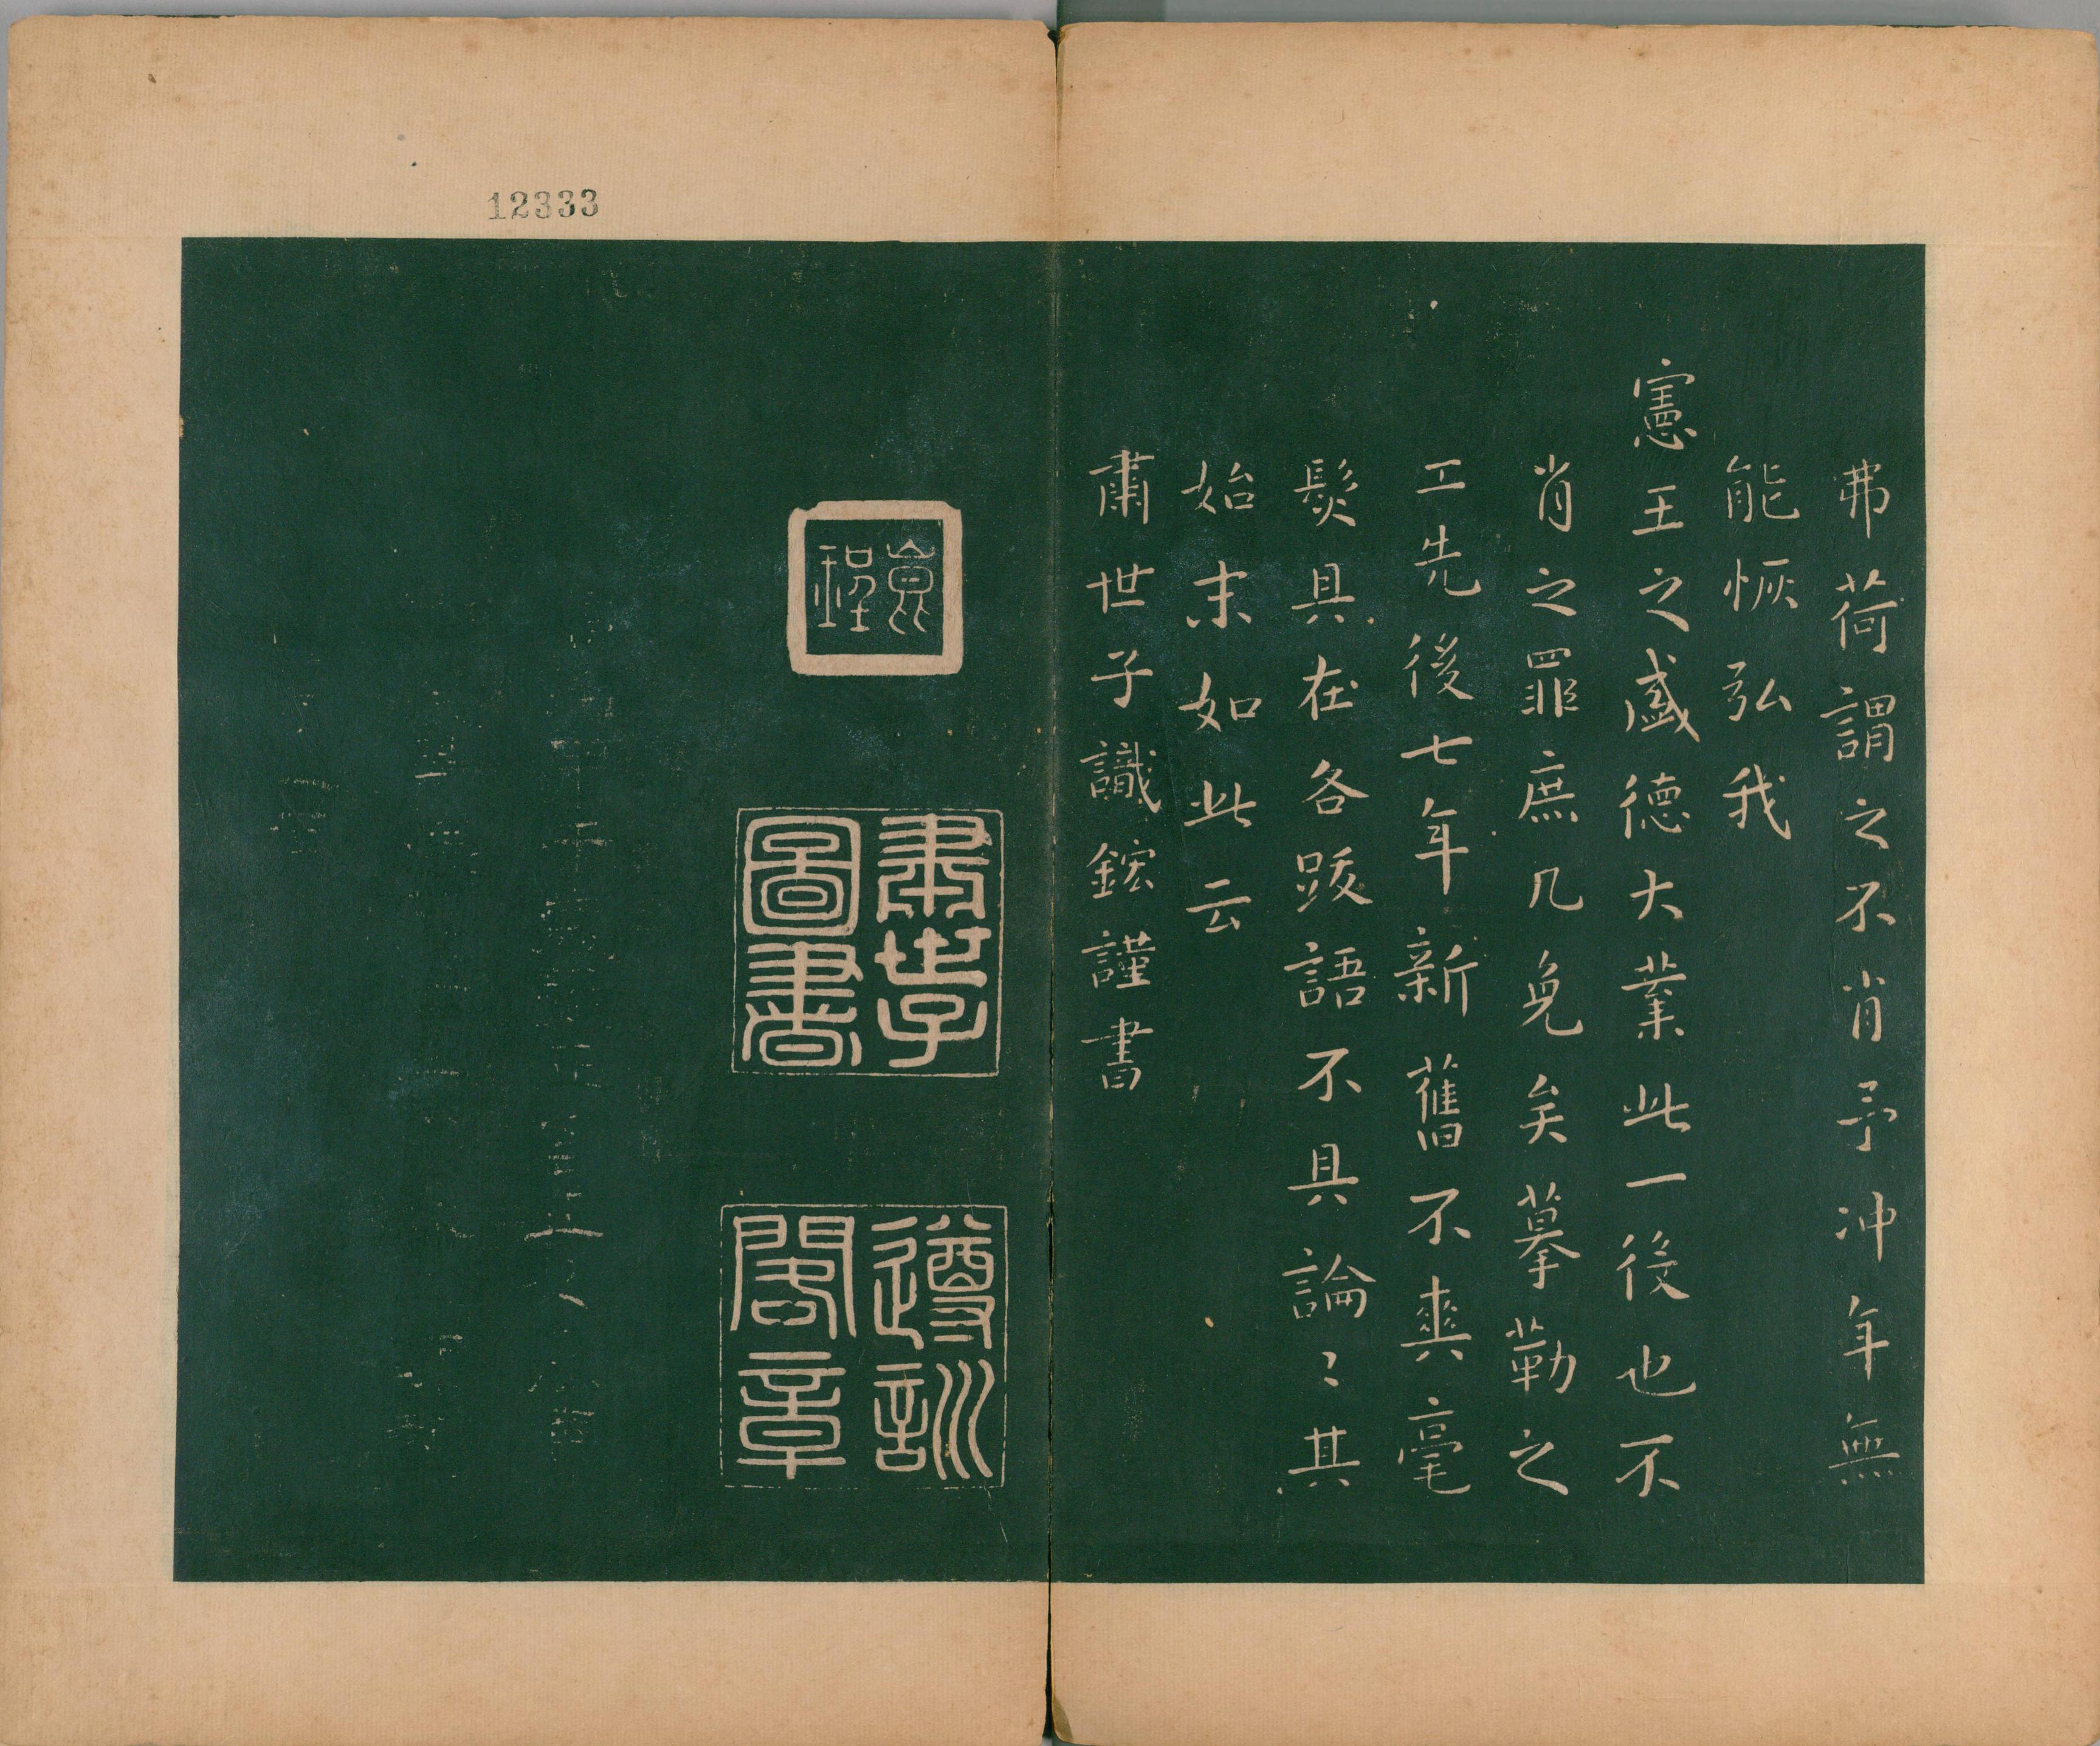 弗荷謂之不肖予冲年無
能恢弘我
憲王之盛德大業此一後也不
肖之罪庶几免矣摹勒之
工先後七年新舊不爽毫
髮具在各跋語不具論〻其
始末如此云
肅世子識鋐謹書
肅世子
圖書
遵訓
閣章
12333